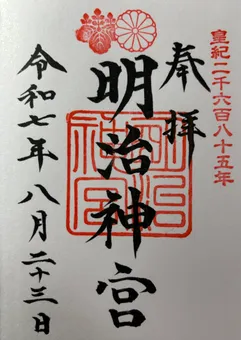 皇紀二千六百八十五年
奉拝
明治神宮
明治神宮
令和七年八月二十三日